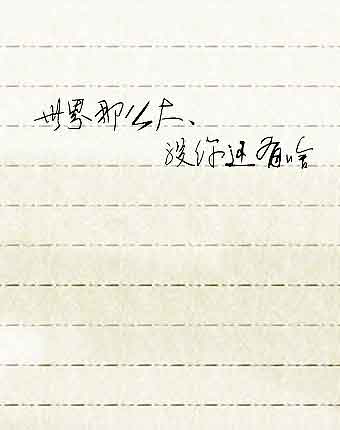 世界那么大、
没你还有啥